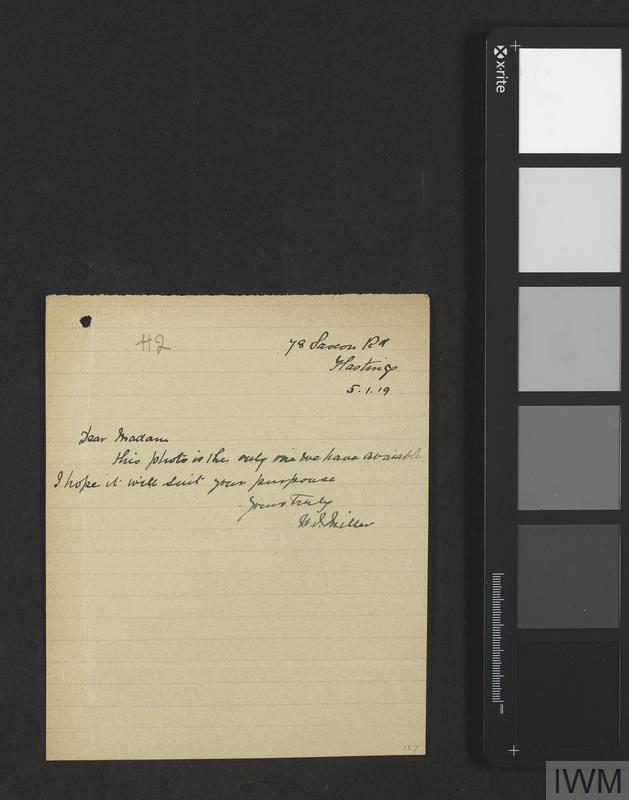 H2
78 Saxon Rd
Hastings
5.1.19
Dear Madam
this photo is the only one we have avaiable
I hope it will suit your purpouse
yours truly
W. J. Miller
157
x·rite
mm
IWM